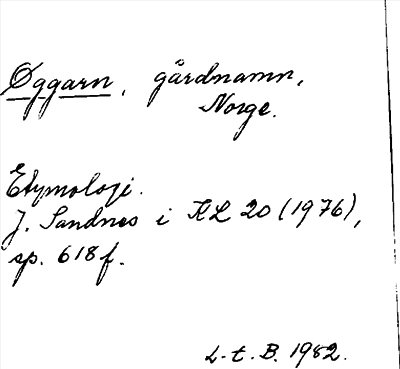 Øggarn, gårdnamn,
Norge.
Etymologi.
J. Sandnes i KL 20 (1976),
sp. 618 f.
L.t.B. 1982.